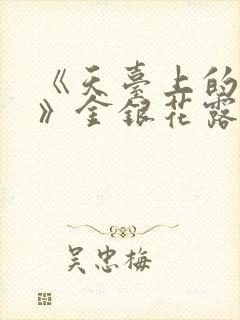 《天臺上的
》金銀花露
吴忠梅